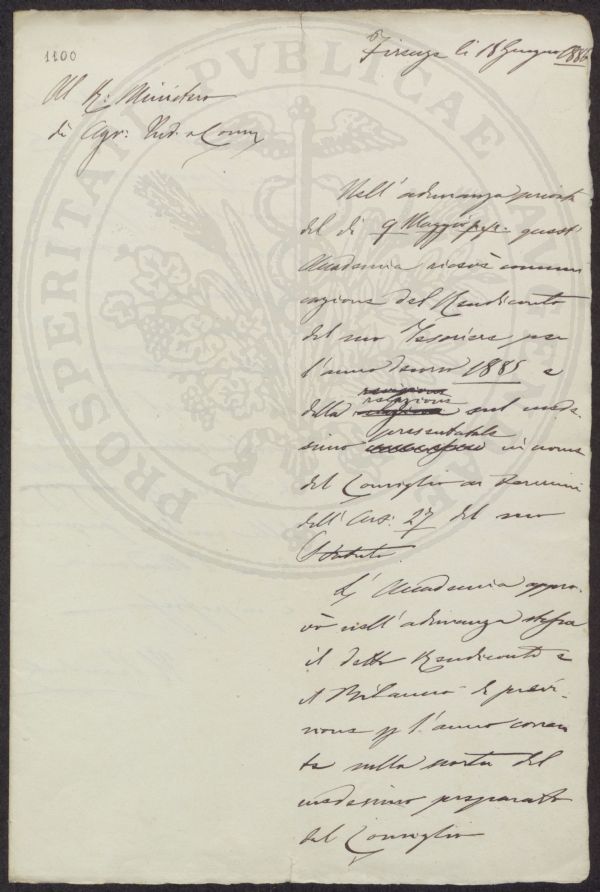 1100
Firenze li 18 Giugno 1886
Al R. Ministero
di Agr. Ind. e Comm.
Nell'adunanza privata
del dì 9 Maggio p.p. quest'
Accademia ricevè comuni
cazione del Rendiconto
del suo Tesoriere per
l'anno decorso 1885 e
della relazione sul mede
simo presentatale in nome
del Consiglio ai termini
dell'Art. 27 del suo
Statuto.
L'Accademia appro-
vò nell'adunanza stessa
il detto Rendiconto e
il Bilancio di previ-
sione p l'anno corren
te sulla scorta del
medesimo preparato
dal Consiglio
PROSPERITATI PVBLICAE AVGENDAE